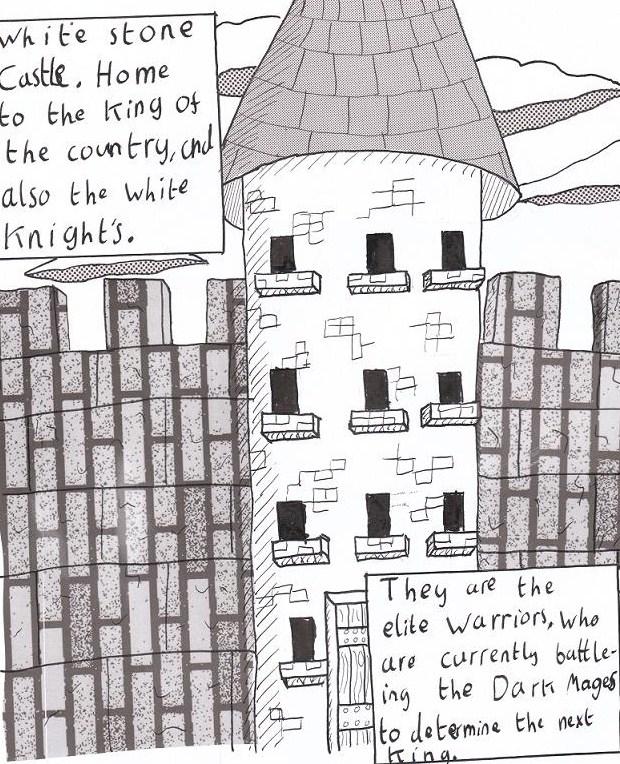 White stone
Castle. Home
to the King of
the country, and
also the white
Knight's.
They are the
elite warriors, who
are currently battle-
ing the Dark Mages
to determine the next
King.